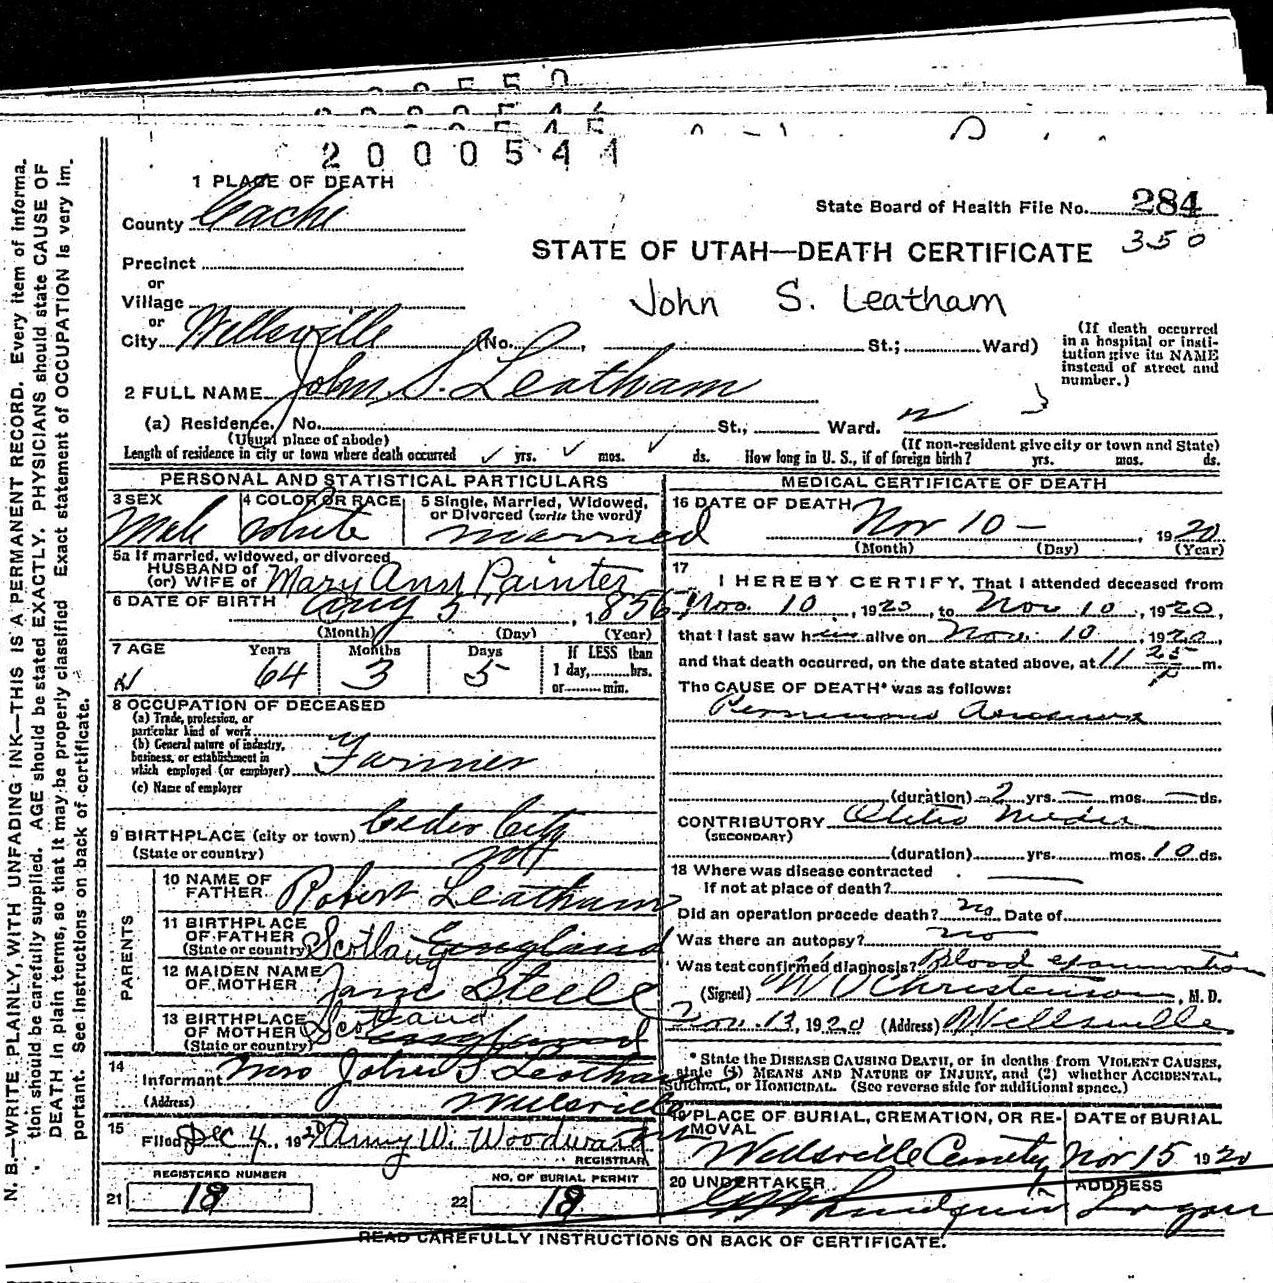 2000544
1 PLACE OF DEATH
County Cache
State Board of Health File No. 284
350
STATE OF UTAH—DEATH CERTIFICATE
Precinct
or
Village
John S. Leatham
or
City Wellsville (No. , St.; Ward)
(If death occurred in a hospital or insti- tution give its NAME instead of street and number.)
2 FULL NAME John S. Leatham
(a) Residence. No. St., Ward.
(Usual place of abode)
(If non-resident give city or town and State)
Length of residence in city or town where death occurred ✓ yrs. ✓ mos. ✓ ds. How long in U. S., if of foreign birth? yrs. mos. ds.
PERSONAL AND STATISTICAL PARTICULARS
3 SEX
Male
4 COLOR OR RACE
White
5 Single, Married, Widowed,
or Divorced (write the word)
married
5a If married, widowed, or divorced
HUSBAND of
(or) WIFE of Mary Ann Painter
6 DATE OF BIRTH Aug 5 , 1856
(Month) (Day) (Year)
7 AGE Years Months Days If LESS than
64 3 5 1 day, hrs.
or min.
8 OCCUPATION OF DECEASED
(a) Trade, profession, or
particular kind of work
(b) General nature of industry,
business, or establishment in
which employed (or employer) Farmer
(c) Name of employer
9 BIRTHPLACE (city or town) Ceder City
(State or country)
PARENTS
10 NAME OF
FATHER Robert Leatham
11 BIRTHPLACE
OF FATHER
(State or country) Scotland England
12 MAIDEN NAME
OF MOTHER Jane Steele
13 BIRTHPLACE
OF MOTHER Scotland
(State or country) England
14
Informant Mrs John S Leatham
(Address) Wellsville
15
Filed Dec 4, 1920 Amy W. Woodward
REGISTRAR
REGISTERED NUMBER
21 18
NO. OF BURIAL PERMIT
22 18
MEDICAL CERTIFICATE OF DEATH
16 DATE OF DEATH
Nov 10 — , 1920
(Month) (Day) (Year)
17
I HEREBY CERTIFY, That I attended deceased from
Nov. 10 , 1920, to Nov 10 , 1920,
that I last saw him alive on Nov. 10 , 1920,
and that death occurred, on the date stated above, at 11 25 P m.
The CAUSE OF DEATH* was as follows:
(duration) 2 yrs. — mos. — ds.
CONTRIBUTORY Otitis Media
(SECONDARY)
(duration) yrs. mos. 10 ds.
18 Where was disease contracted
if not at place of death?
Did an operation precede death? no Date of
Was there an autopsy? no
Was test confirmed diagnosis? Blood examination
(Signed) Christenson , M. D.
Nov. 13, 1920 (Address) Wellsville
* State the DISEASE CAUSING DEATH, or in deaths from VIOLENT CAUSES,
state (1) MEANS AND NATURE OF INJURY, and (2) whether ACCIDENTAL,
SUICIDAL, or HOMICIDAL. (See reverse side for additional space.)
19 PLACE OF BURIAL, CREMATION, OR RE-
MOVAL
Wellsville Cemetery
DATE of BURIAL
Nov 15 1920
20 UNDERTAKER
Lundquist
ADDRESS
Logan
READ CAREFULLY INSTRUCTIONS ON BACK OF CERTIFICATE.
N. B.—WRITE PLAINLY, WITH UNFADING INK—THIS IS A PERMANENT RECORD. Every item of informa-
tion should be carefully supplied. AGE should be stated EXACTLY. PHYSICIANS should state CAUSE OF
DEATH in plain terms, so that it may be properly classified. Exact statement of OCCUPATION is very im-
portant. See instructions on back of certificate.